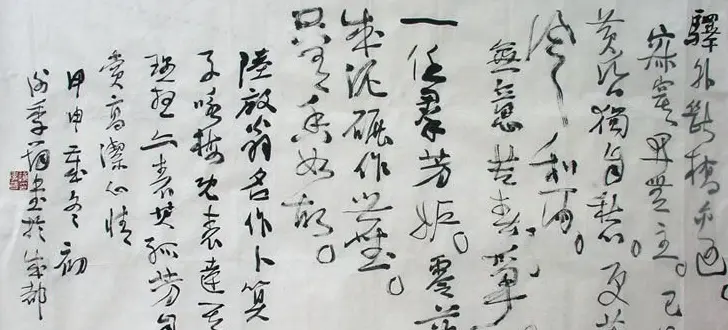 驛外斷橋邊。
寂寞開無主。已
黃昏獨自愁。更著
風和雨。
無意苦
一任羣芳妒。零落
成泥碾作塵。
只有香如故。
陸放翁名作卜算
子咏梅既表達
亦表其孤芳自
賞高潔心情
甲申歲冬初
書於成都